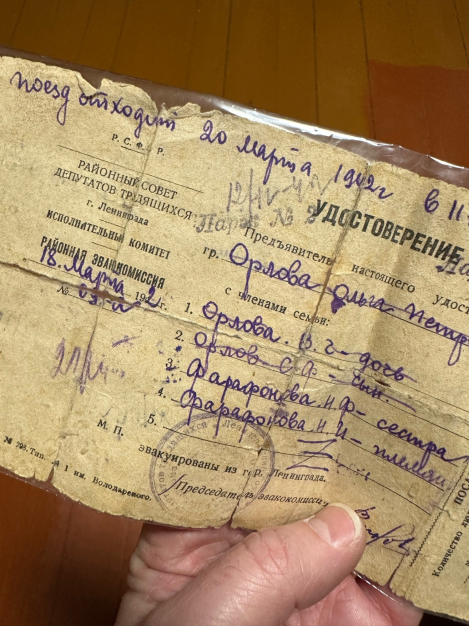 поезд отходит 20 марта 1942г в 11
Р. С. Ф. С. Р.
РАЙОННЫЙ СОВЕТ
ДЕПУТАТОВ ТРУДЯЩИХСЯ
г. Ленинграда
ИСПОЛНИТЕЛЬНЫЙ КОМИТЕТ
РАЙОННАЯ ЭВАКОКОМИССИЯ
18. Марта 194 2
№
УДОСТОВЕРЕНИЕ
Предъявитель настоящего удост
гр. Орлова Ольга Петр
с членами семьи:
1. Орлова. В. Г - дочь
2. Орлов С. Ф. - сын
3. Фарафонова Н. Ф - сестра
4. Фарафонова Н. И - племян
5.
М. П.
эвакуированы из гор. Ленинграда.
Председатель эвакокомиссии
Тип. № 1 им. Володарского.
Количество